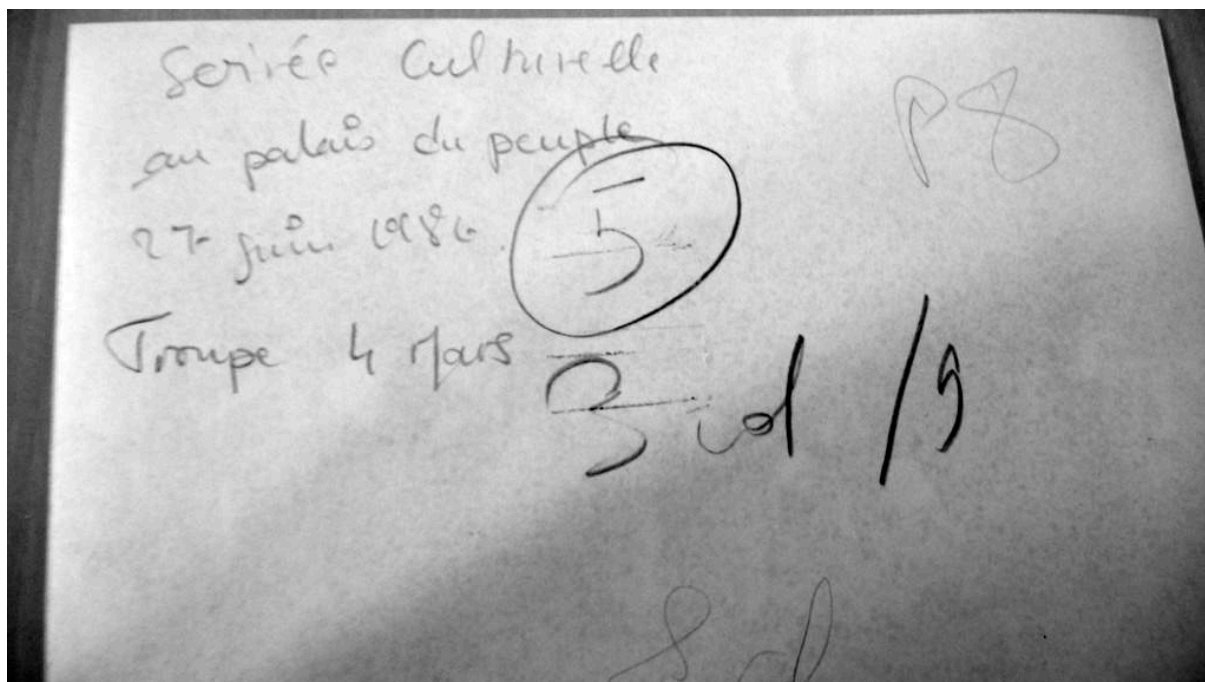 Soirée Culturelle
P8
au palais du peuple
5
27 juin 1986.
Troupe 4 Mars
3 col /9